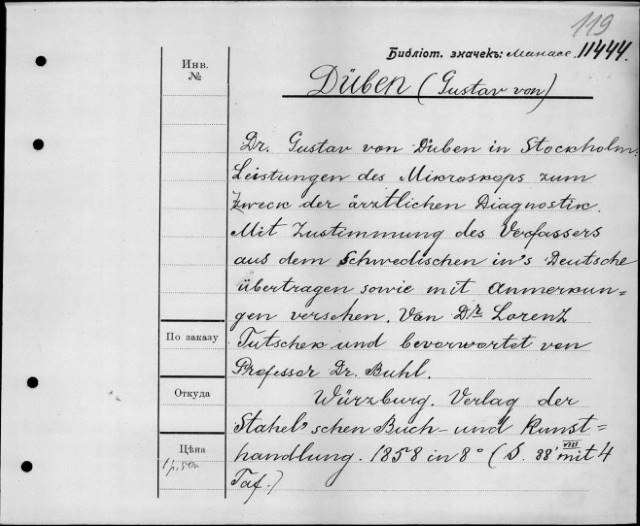 119
Библіот. значекъ: Манасе. 11444.
Инв.
№
Düben (Gustav von)
Dr. Gustav von Düben in Stockholm.
Leistungen des Mikroskops zum
Zweck der ärztlichen Diagnostik.
Mit Zustimmung des Verfassers
aus dem Schwedischen in's Deutsche
übertragen sowie mit Anmerkun=
gen versehen. Von Dr Lorenz
По заказу
Tutschek und bevorwortet von
Professor Dr. Buhl.
Откуда
Würzburg. Verlag der
Stahel'schen Buch- und Kunst=
Цѣна
handlung. 1858 in 8° (S. VIII mit 4
Taf.)